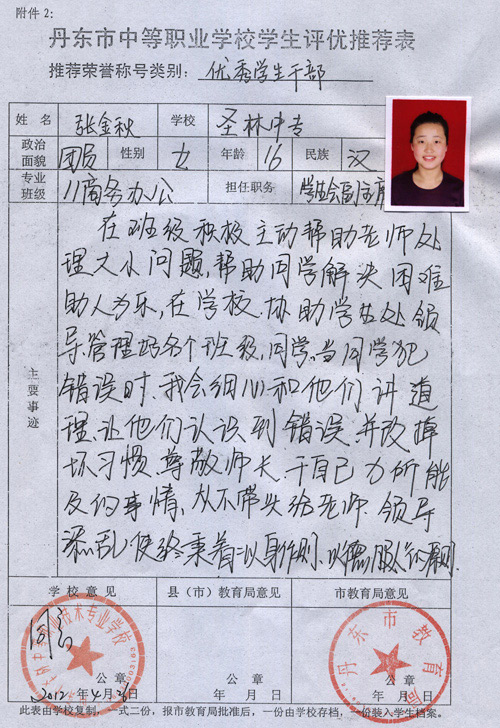 附件2:
丹东市中等职业学校学生评优推荐表
推荐荣誉称号类别: 优秀学生干部
姓 名 张金秋 学校 圣林中专
政治面貌 团员 性别 女 年龄 16 民族 汉
专业班级 11商务办公 担任职务 学生会副主席
主要事迹
在班级积极主动帮助老师处
理大小问题,帮助同学解决困难
助人为乐,在学校.协助学生处领
导.管理好各个班级,同学.当同学犯
错误时.我会细心和他们讲道
理.让他们认识到错误.并改掉
坏习惯.尊敬师长.干自己力所能
及的事情,从不带头给老师.领导
添乱.使终秉着以身作则.以德服人
学校意见 县(市)教育局意见 市教育局意见
同意
公章 公章 公章
2012年4月26日 年 月 日 年 月 日
丹东市教育局
此表由学校复制,一式二份,报市教育局批准后,一份由学校存档,一份装入学生档案。